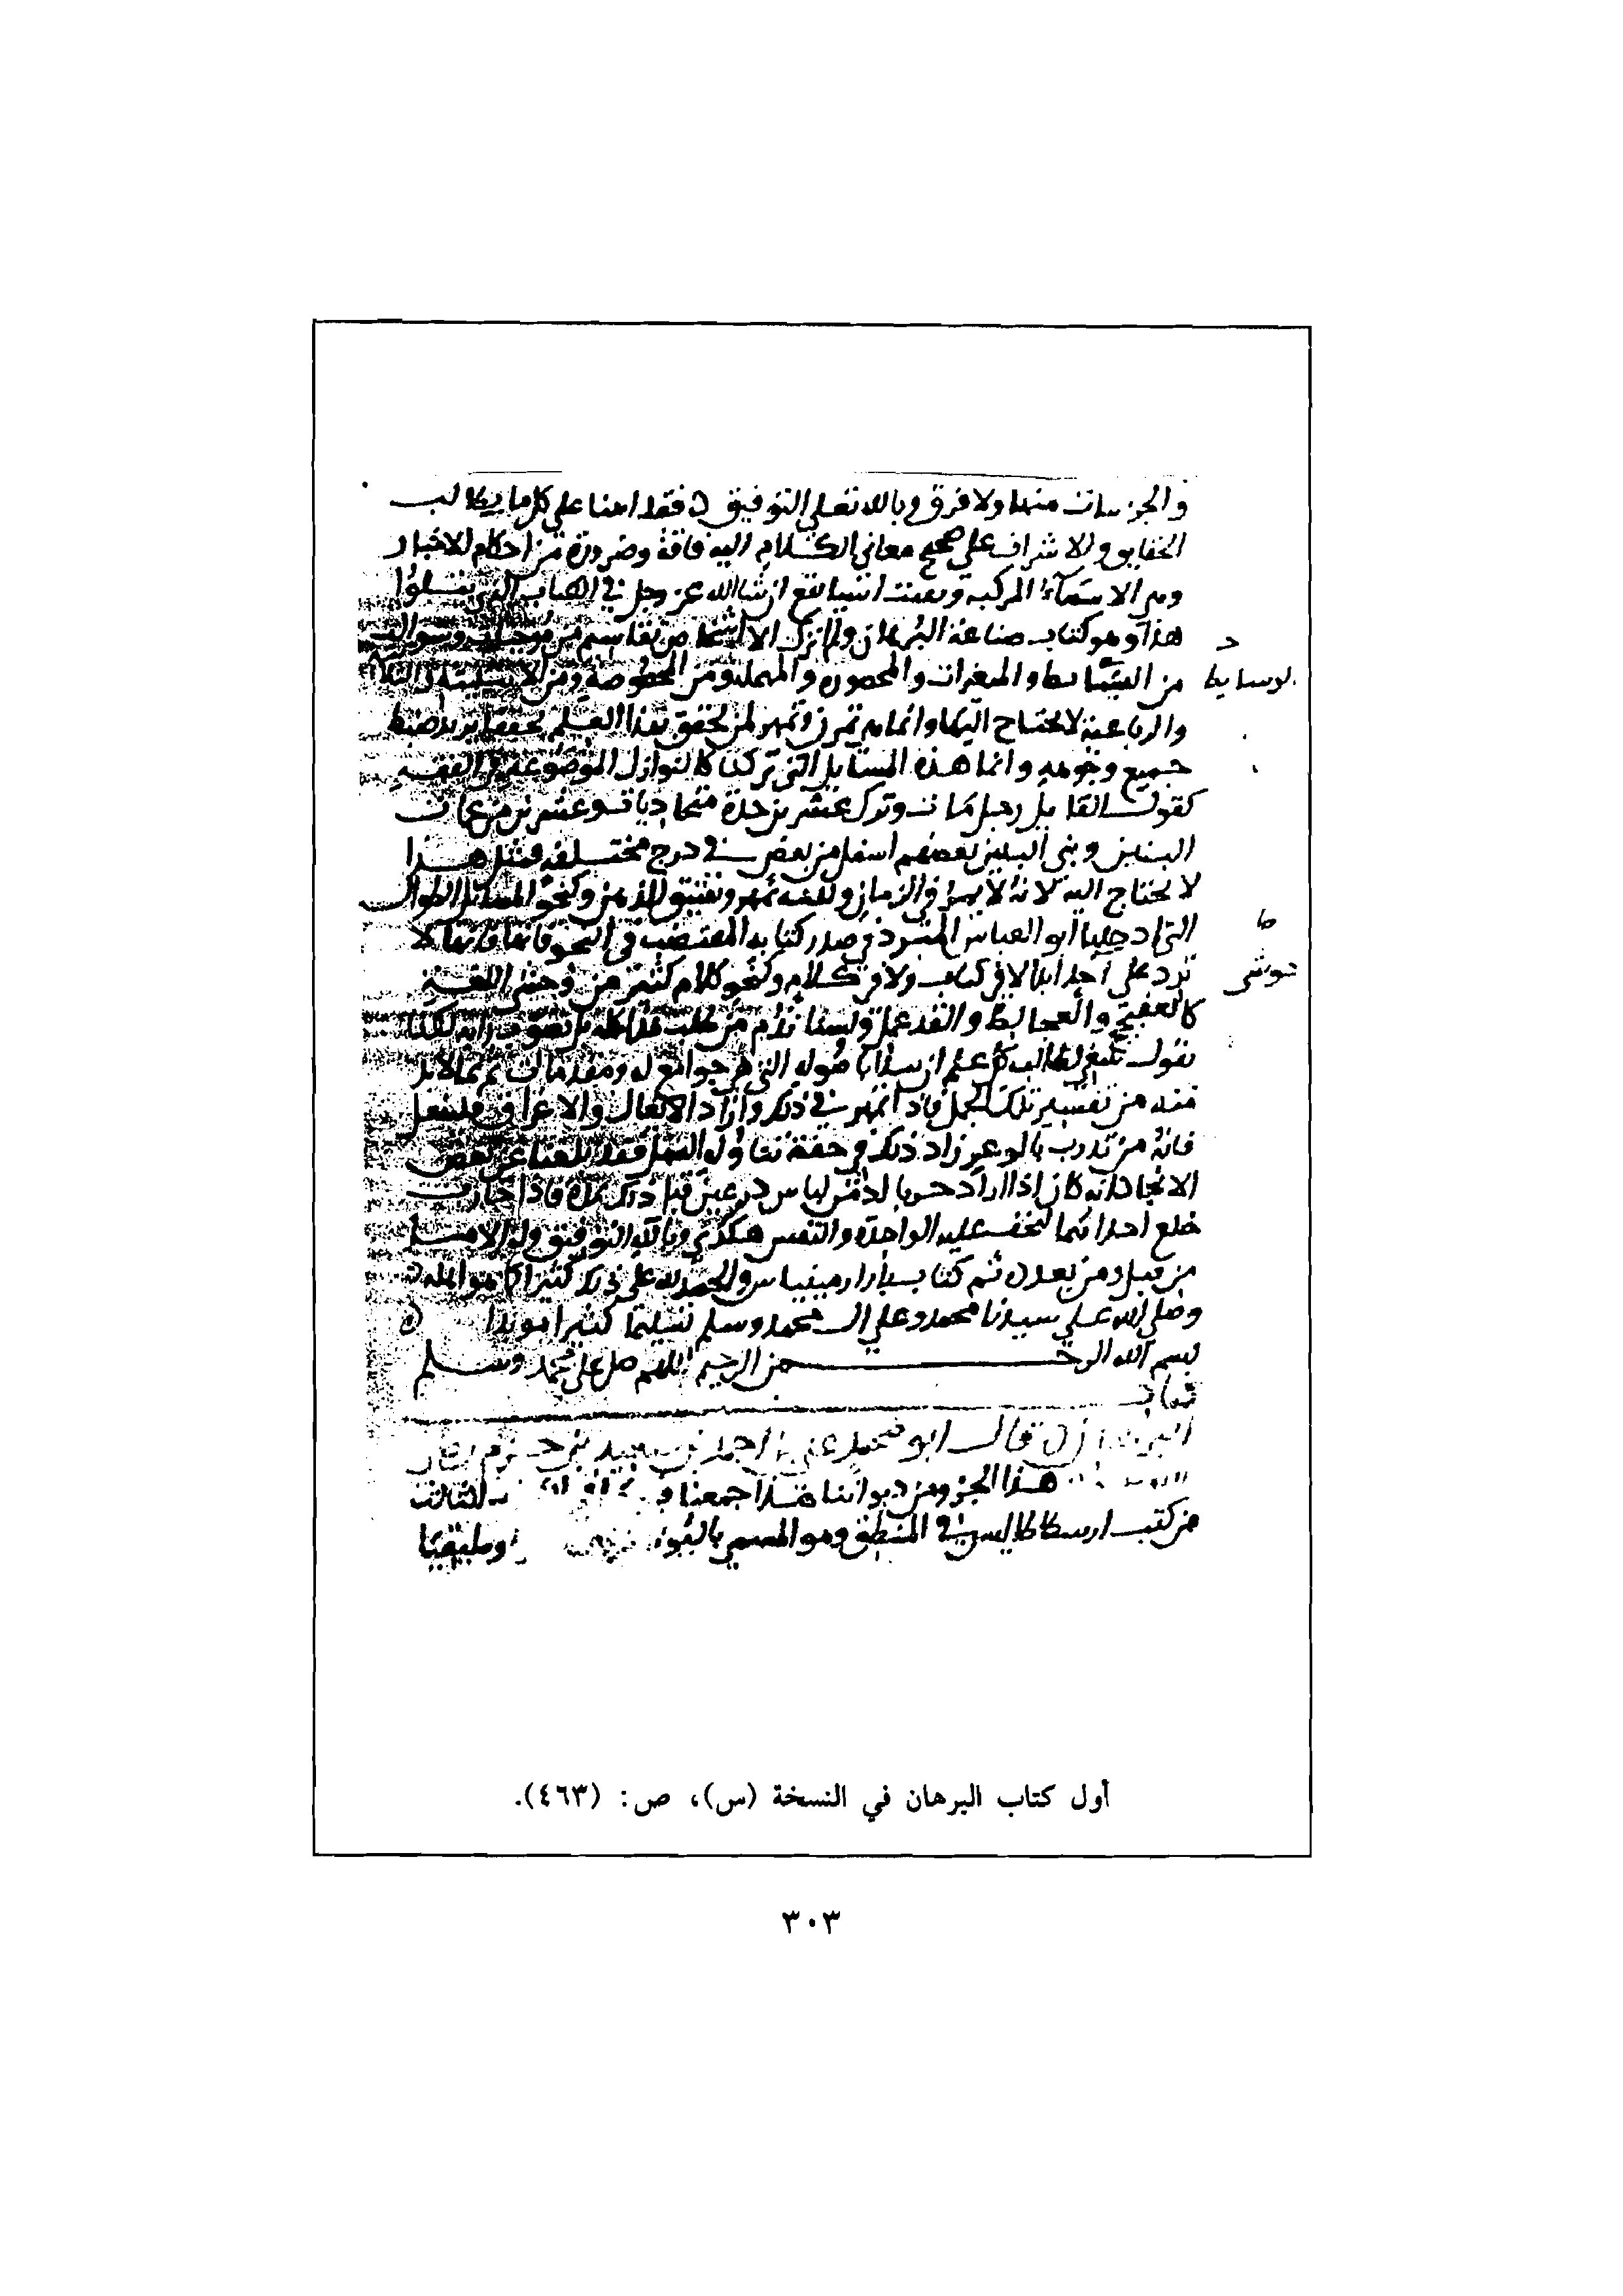 والجزييات منها ولا فرق وبالله تعلى التوفيق فقد اتينا على كل ما بطالب
الحقايق والاشراف على صحيح معاني الكلام اليه فاقة وضرورة من احكام الاخبار
وهي الاسماء المركبة وبقيت اشيا تقع ان شا الله عز وجل في الكتاب الذي يتلوا
هذا وهو كتاب صناعة البرهان ولم نترك الا اشيا من تقاسيم من موجبات وسوالب
من البسايط والمتغيرات والمحصورة والمهملة ومن المخصوصة ومن
والرباعية لا يحتاج اليها وانما هي تمرن وتمهر لمن تحقق بهذا العلم تحققا يريد ضبط
جميع وجوهه وانما هذه المسايل التي تركنا كالنوازل الموضوعة في الفقه
كقول القايل رجل مات وترك عشرين جدة متحاذيات وعشرين من بنات
البنين وبني البنين بعضهم اسفل من بعض في درج مختلفة فمثل هذا
لا يحتاج اليه لانه لا يمر في الزمان ولكنه تمهر وتفتيق للذهن وكنحو المسايل الطوال
التي ادخلها ابو العباس المبرد في صدر كتابه المقتضب في النحو فانها لا
ترد على احد ابدا لا في كتاب ولا في كلام وكنحو كلام كثير من وحشي اللغة
كالعفنجج والعجالط والقذعملة ولسنا نذم من طلب هذا كله بل نصوب رايه لكنا
نقول ينبغي لطالب كل علم ان يبدا باصوله التي هي جوامع له ومقدمات ثم بما لا بد
منه من تفسير تلك الجمل فاذا تمهر في ذلك واراد الايغال والاغراق فليفعل
فانه من تدرب بالوعر زاد ذلك في خفة تناول السهل فقد بلغنا عن بعض
الانجاد انه كان اذا اراد حربا لبس درعين قبل ذلك بمدة فاذا حارب
خلع احداهما لتخف عليه الواحدة والنفس هكذى وبالله التوفيق وله الامر
من قبل ومن بعد تم كتاب بارارمينياس والحمد لله على ذلك كثيرا كما هو اهله
وصلى الله على سيدنا محمد وعلى ال محمد وسلم تسليما كثيرا
بسم الله الرحمن الرحيم اللهم صل على محمد وسلم
كتاب
البرهان قال ابو محمد علي بن احمد بن سعيد بن حزم
هذا الجزء من ديواننا هذا جمعنا فيه الثالث
من كتب ارسطاطاليس في المنطق وهو المسمى
أول كتاب البرهان في النسخة (س)، ص: (٤٦٣).
٣٠٣